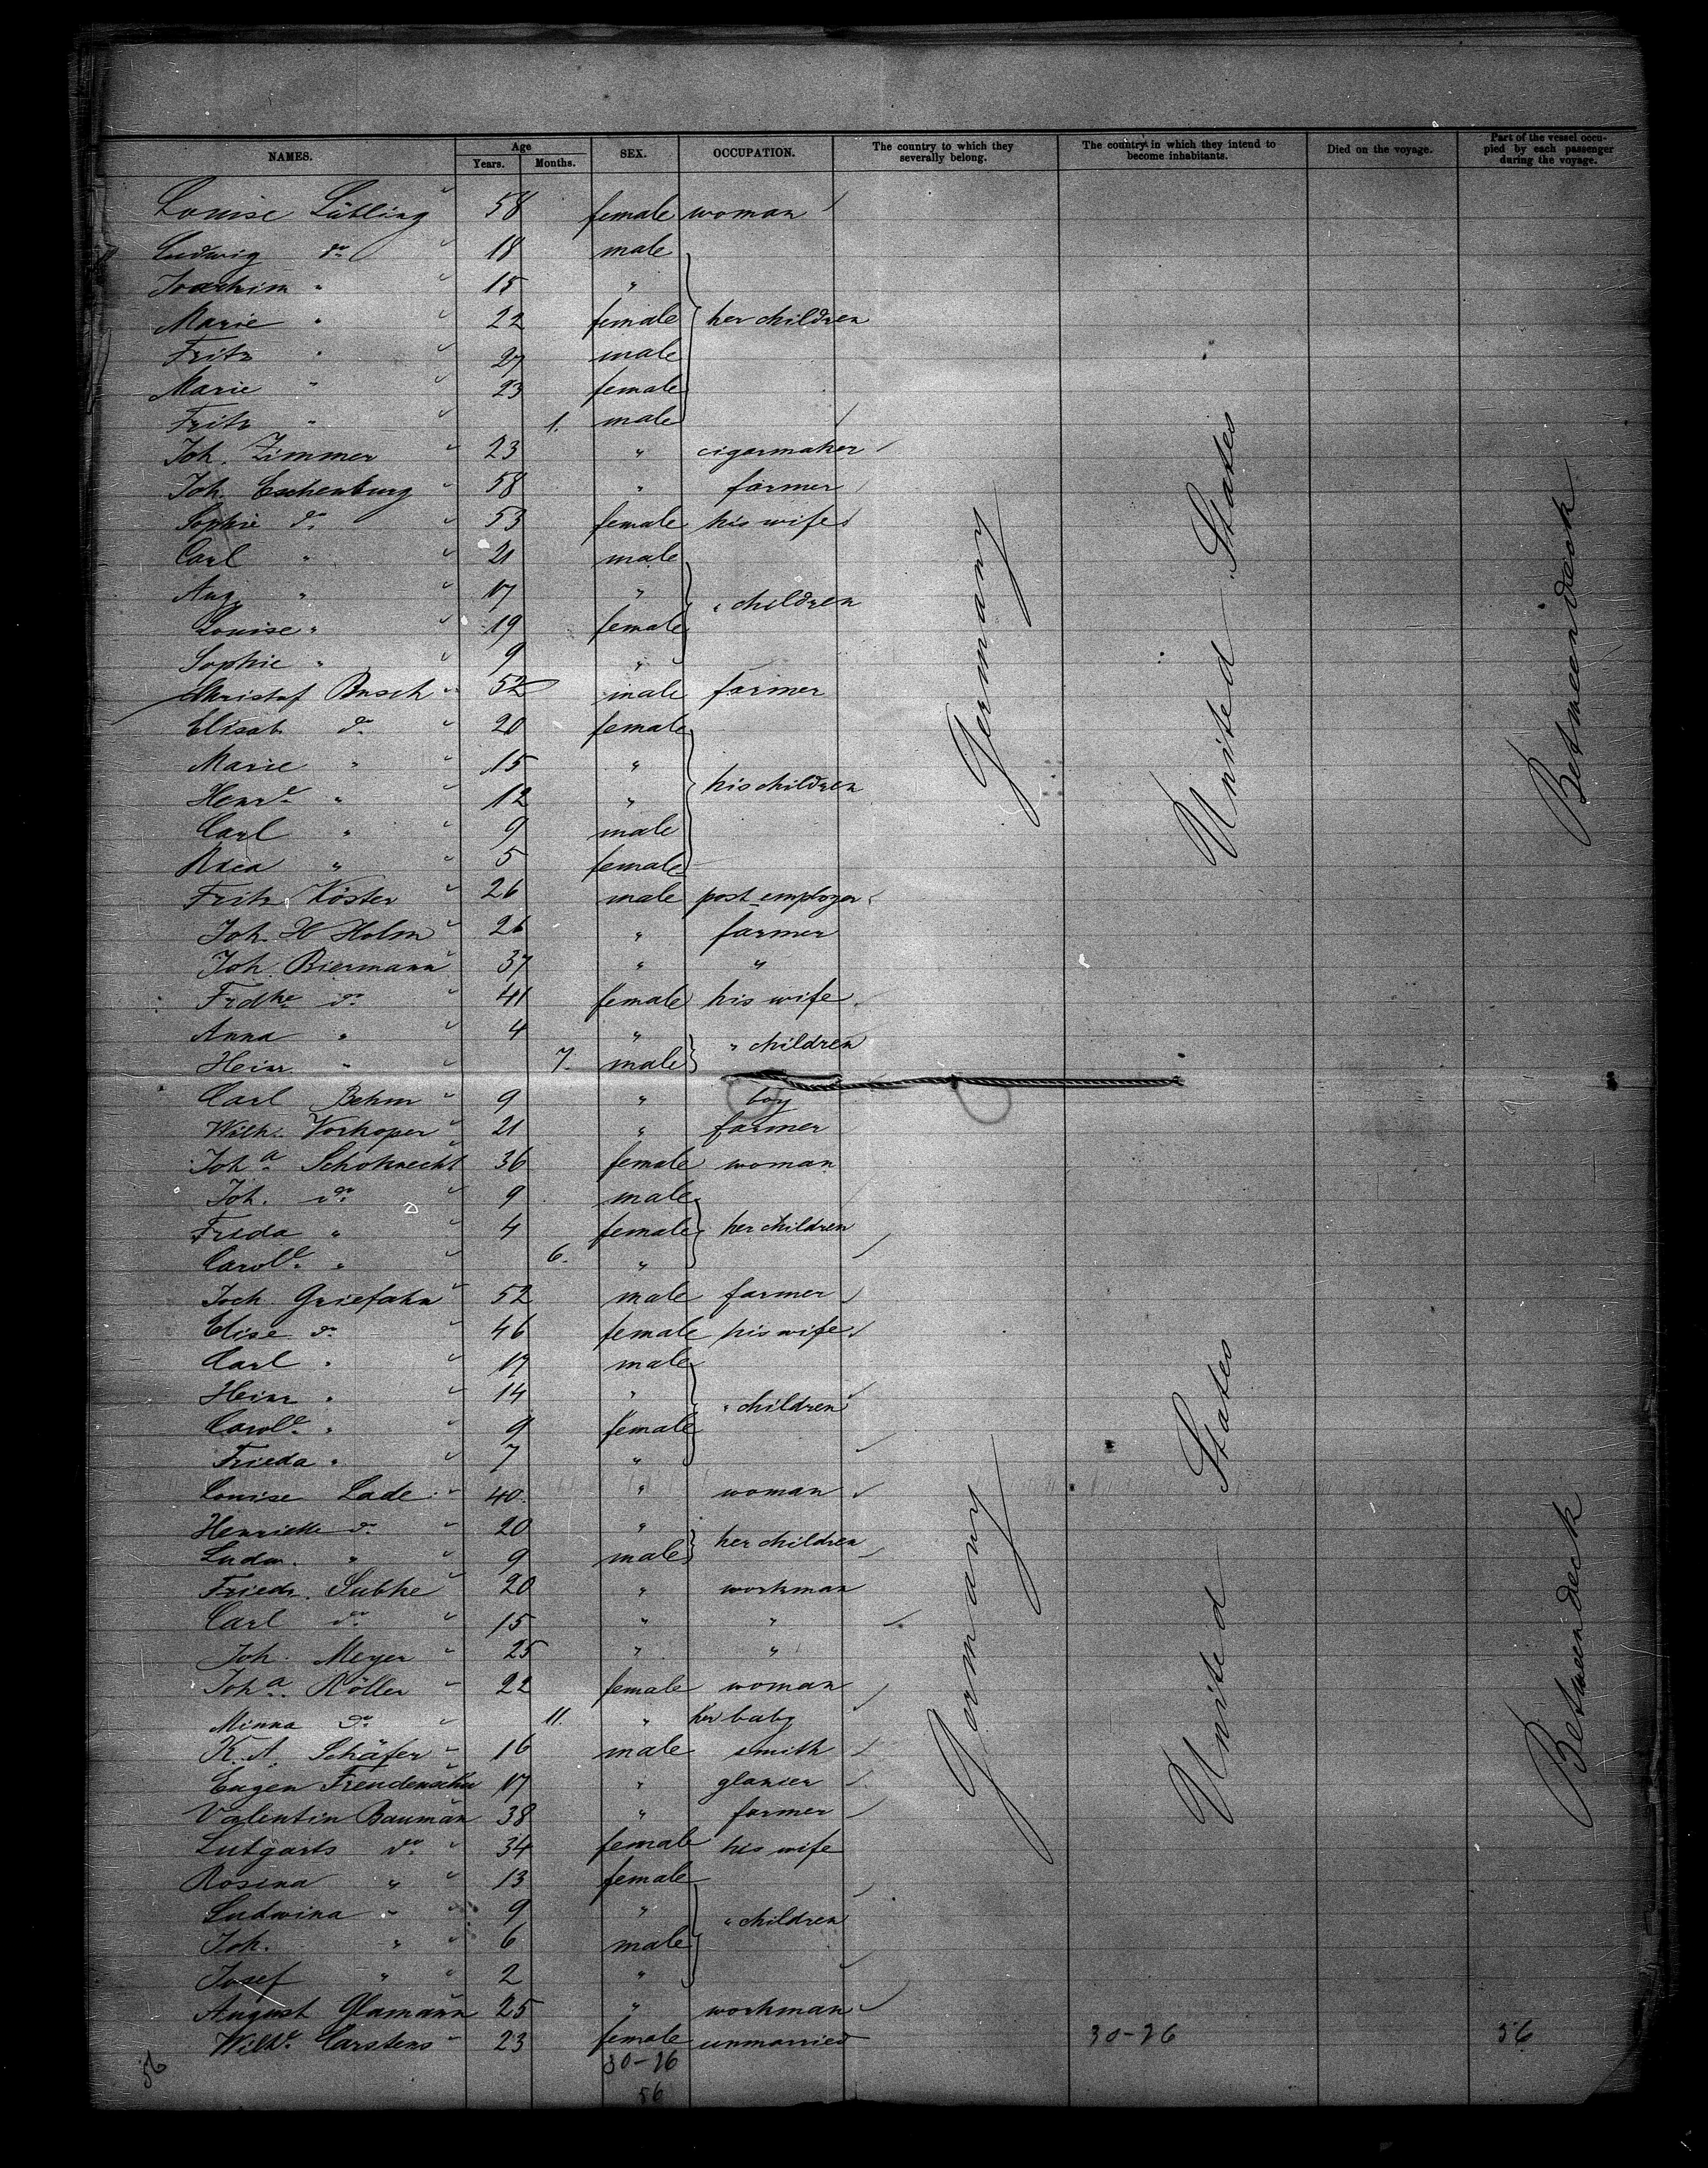 NAMES. Age Years. Months. SEX. OCCUPATION. The country to which they severally belong. The country in which they intend to become inhabitants. Died on the voyage. Part of the vessel occupied by each passenger during the voyage.
Louise Lübling 58 female woman
Ludwig do 18 male
Joachim " 15 "
Marie " 22 female her children
Fritz " 27 male
Marie " 23 female
Fritz " 1. male
Joh. Zimmer 23 " cigarmaker
Joh. Eschenburg 58 " farmer
Sophie do 53 female his wife
Carl " 21 male
Aug. " 17 " " children
Louise " 19 female
Sophie " 9 "
Christof Busch 52 male farmer
Elisab. do 20 female
Marie " 15 "
Henr.e " 12 " his children
Carl " 9 male
" 5 female
Fritz Köster 26 male post-employer
Joh. H Holm 26 " farmer
Joh. Biermann 37 " "
Frdke do 41 female his wife
Anna " 4 " " children
Heinr. " 7. male
Carl Behm 9 " boy
Wilh. Vorhoper 21 " farmer
Joh.a Schoknecht 36 female woman
Joh. do 9 male
Freda " 4 female her children
Carol.e " 6. "
Joch. Griefahn 52 male farmer
Elise do 46 female his wife
Carl " 17 male
Heinr " 14 " " children
Carol.e " 9 female
Frieda " 7 "
Louise Lade 40 " woman
Henriette do 20 " her children
Ludw. " 9 male
Friedr. Subke 20 " workman
Carl do 15 " "
Joh. Meyer 25 " "
Joh.a Röller 22 female woman
Minna do 11. " her baby
K. A. Schäfer 16 male smith
Eugen 17 " glazier
Valentin Bauman 38 " farmer
Lutgarts do 34 female his wife
Rosina " 13 female
Ludwina " 9 " " children
Joh. " 6 male
Josef " 2 "
August Glamann 25 " workman
Wilh.e Carstens 23 female unmarried
Germany
United States
Betweendeck
Germany
United States
Betweendeck
30-26
56
30-26
56
56